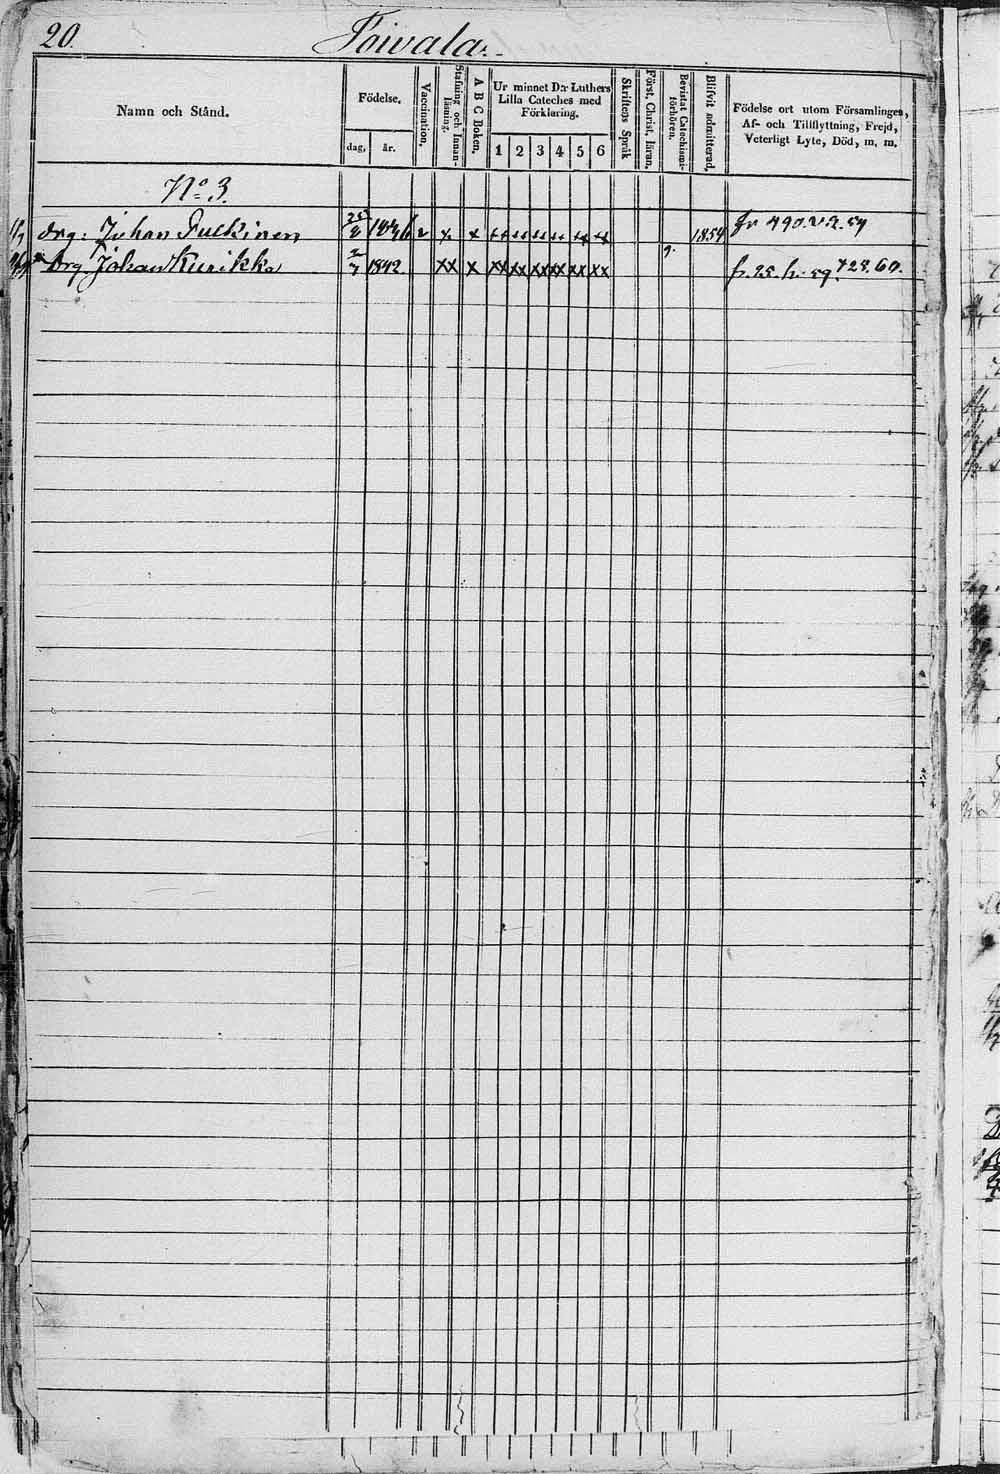 20. Toivala.
Namn och Stånd.
Födelse.
dag, år.
Vaccination.
Stafning och Innanläsning.
A B C Boken.
Ur minnet D:r Luthers Lilla Cateches med Förklaring.
1 2 3 4 5 6
Skriftens Språk
Först. Christ. läran.
Bevistat Catechismiförhören.
Blifvit admitterad.
Födelse ort utom Församlingen, Af- och Tillflyttning, Frejd, Veterligt Lyte, Död, m. m.
No 3.
drg: Johan Pulkinen 1836 v x x xx xx xx xx xx xx 1854
Drg. Johan Kurikka 2/7 1842 xx x xx xx xx xx xx xx